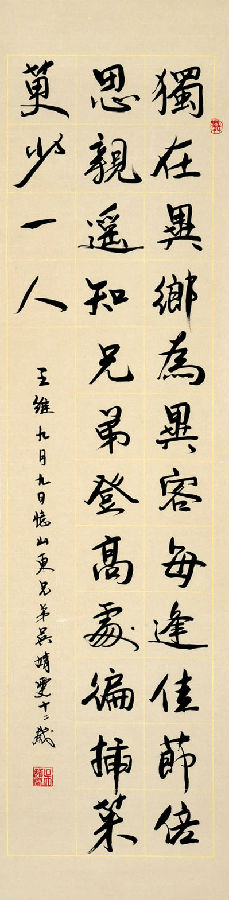 獨在異鄉為異客每逢佳節倍
思親遙知兄弟登高處徧插茱
萸少一人
王維九月九日憶山東兄弟吳靖雯十二歲